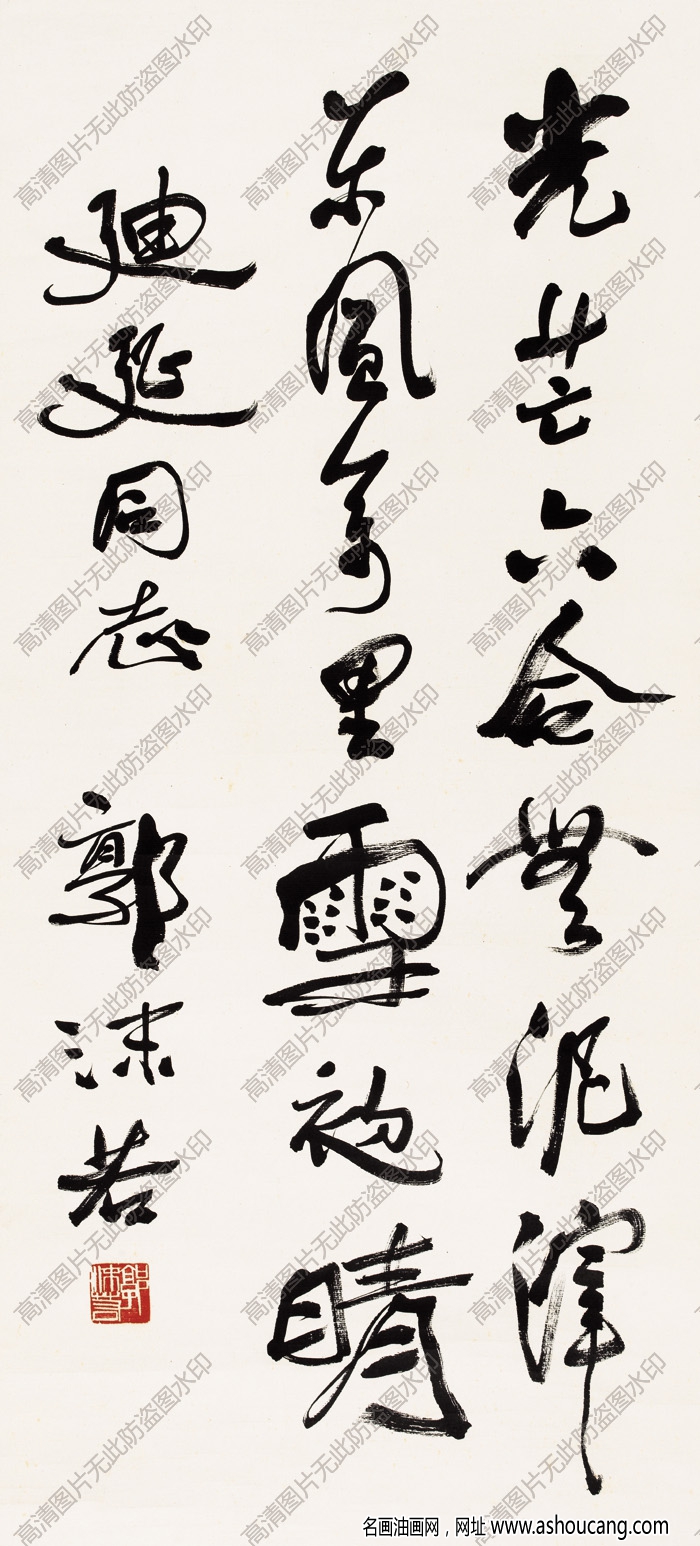 光芒六合無泥滓
東風萬里雪初晴
廸延同志 郭沫若
郭沫若
高清图片无此防盗图水印
名画油画网，网址 www.ashoucang.com